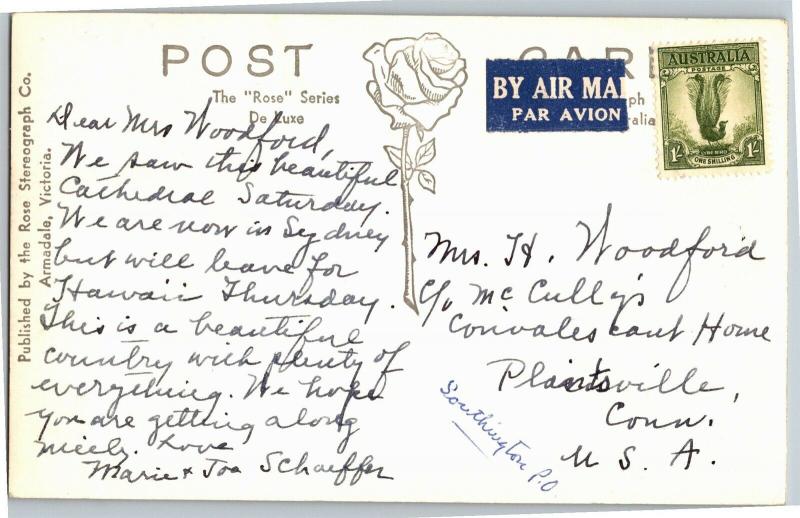 POST CARD
The "Rose" Series
De Luxe
Published by the Rose Stereograph Co.
Armadale, Victoria.
BY AIR MAI
PAR AVION
ph
ralia
AUSTRALIA
POSTAGE
LYRE BIRD
1/- ONE SHILLING 1/-
Dear Mrs Woodford,
We saw this beautiful
Cathedral Saturday.
We are now in Sydney
but will leave for
Hawaii Thursday.
This is a beautiful
country with plenty of
everything. We hope
you are getting along
nicely. Love
Marie + Joa Schaeffer
Mrs. H. Woodford
c/o McCully's
Convalescant Home
Plantsville,
Conn.
U.S.A.
Southington P.O.